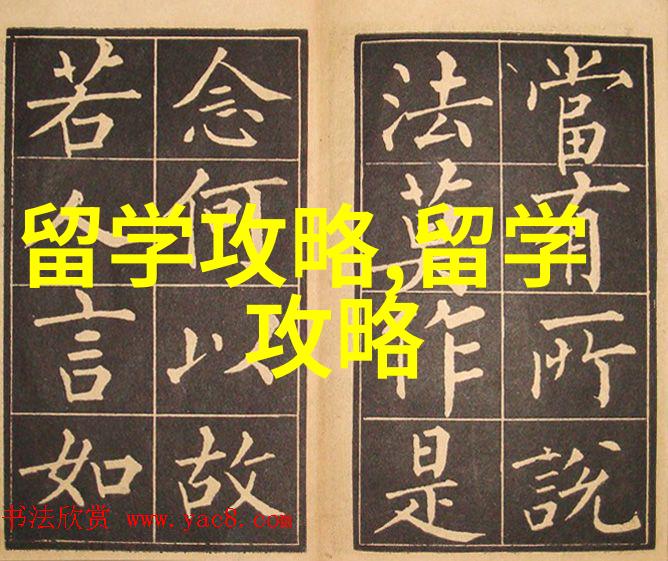 當有所說
法莫作是
念何以故
若人言如
留学攻略,留学
攻略
书法欣赏 www.yac8.com